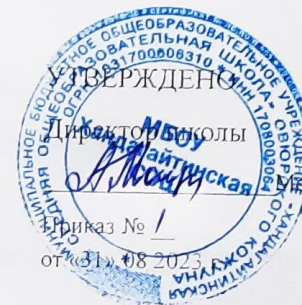 УТВЕРЖДЕНО
Директор школы
М
Приказ № 1
от «31» 08 2023 г.
МУНИЦИПАЛЬНОЕ БЮДЖЕТНОЕ ОБЩЕОБРАЗОВАТЕЛЬНОЕ УЧРЕЖДЕНИЕ
СРЕДНЯЯ ОБЩЕОБРАЗОВАТЕЛЬНАЯ ШКОЛА
КОЖУУНА
МБОУ
Хандагайтинская